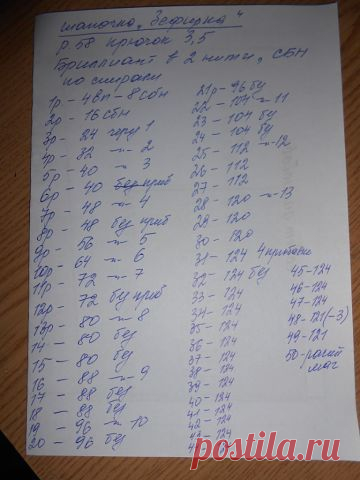 Шапочка "Зефирка"
р. 58 крючок 3,5
Бриллиант в 2 нити, сбн
по спирали
1р - 4вп - 8 сбн
2р - 16 сбн
3р - 24 через 1
4р - 32 -"- 2
5р - 40 -"- 3
6р - 40 без приб
7р - 48 -"- 4
8р - 48 без приб
9р - 56 -"- 5
10р - 64 -"- 6
11р - 72 -"- 7
12р - 72 без приб
13р - 80 -"- 8
14 - 80 без
15 - 80 без
16 - 88 -"- 9
17 - 88 без
18 - 88 без
19 - 96 -"- 10
20 - 96 без
21р - 96 без
22 - 104 -"- 11
23 - 104 без
24 - 104 без
25 - 112 -"- 12
26 - 112
27 - 112
28 - 120 -"- 13
29 - 120
30 - 120
31 - 124 4 прибавки
32 - 124 без
33 - 124
34 - 124
35 - 124
36 - 124
37 - 124
38 - 124
39 - 124
40 - 124
41 - 124
42 - 124
43 - 124
45 - 124
46 - 124
47 - 124
48 - 121 (-3)
49 - 121
50 - рачий
шаг
postila.ru